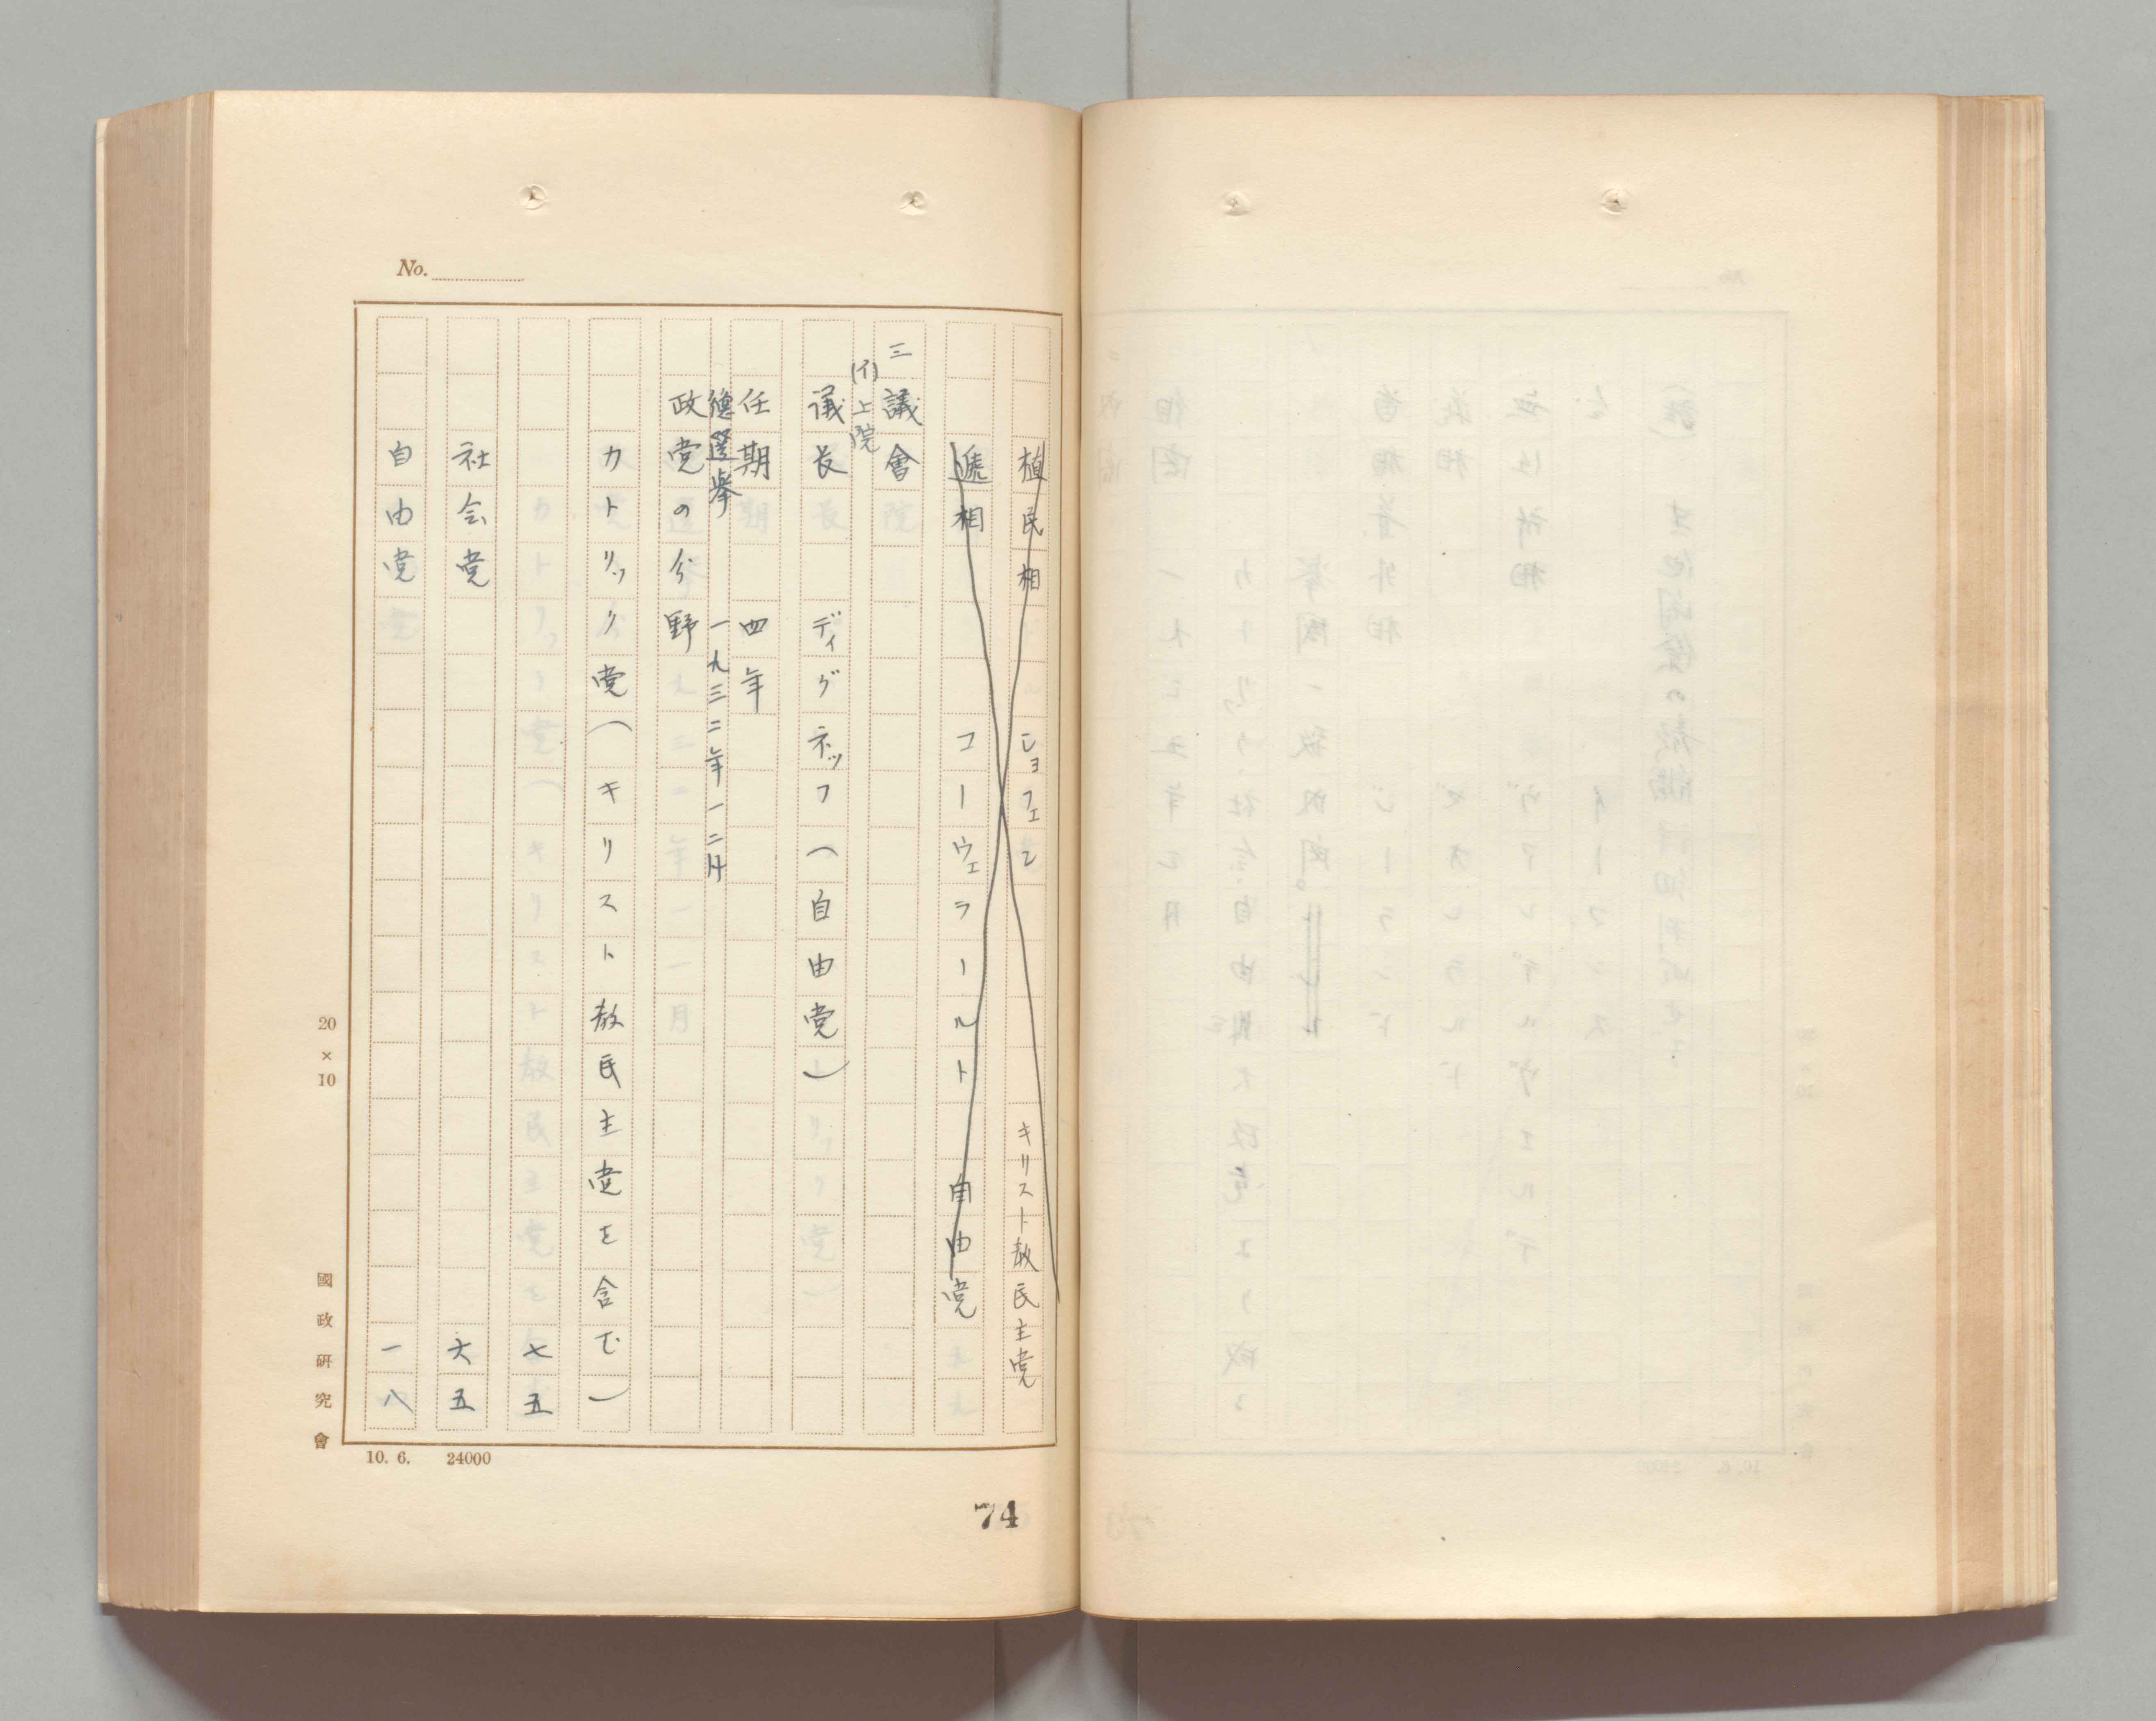 No.
植民相 ショフェン キリスト教民主党
逓相 コーウェラールト 自由党
三 議會
(イ)上院
議長 ディグネッフ(自由党)
任期 四年
總選挙 一九三二年一二月
政党の分野
カトリック党(キリスト教民主党を含む)
七五
社会党 六五
自由党 一八
20×10
國政研究會
10. 6. 24000
74